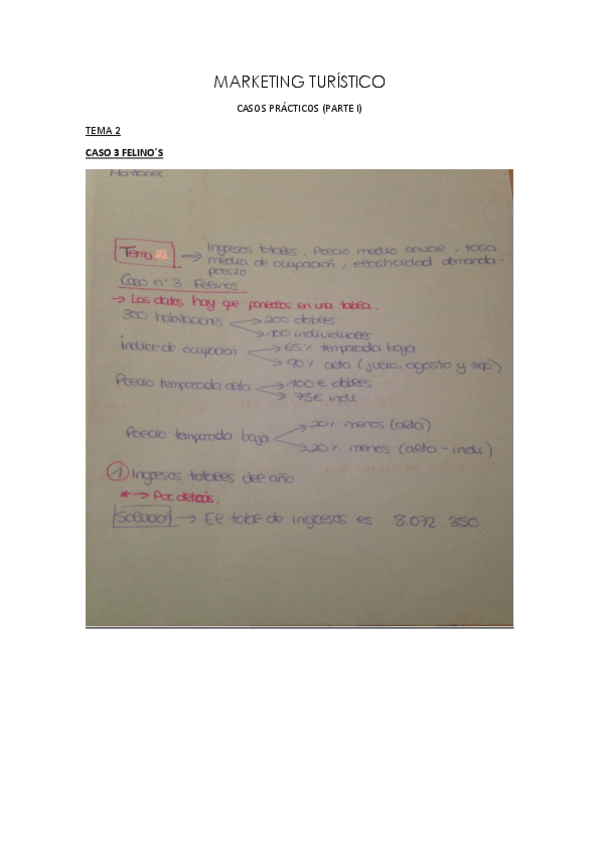 MARKETING TURÍSTICO
CASOS PRÁCTICOS (PARTE I)
TEMA 2
CASO 3 FELINO´S
Montaner
Tema 2 → Ingresos totales, Precio medio anual, tasa
media de ocupación, elasticidad demanda-
precio
Caso nº 3 Felinos
→ Los datos hay que ponerlos en una tabla.
300 habitaciones → 200 dobles
→ 100 individuales
Índice de ocupación → 65% temporada baja
→ 90% alta (julio, agosto y sep)
Precio temporada alta → 100 € dobles
→ 75€ indi
Precio temporada baja → 20% menos (alta)
→ 20% menos (alta - indi)
① Ingresos totales del año
* → Por detrás.
Solución → El total de ingresos es 8.072.350.